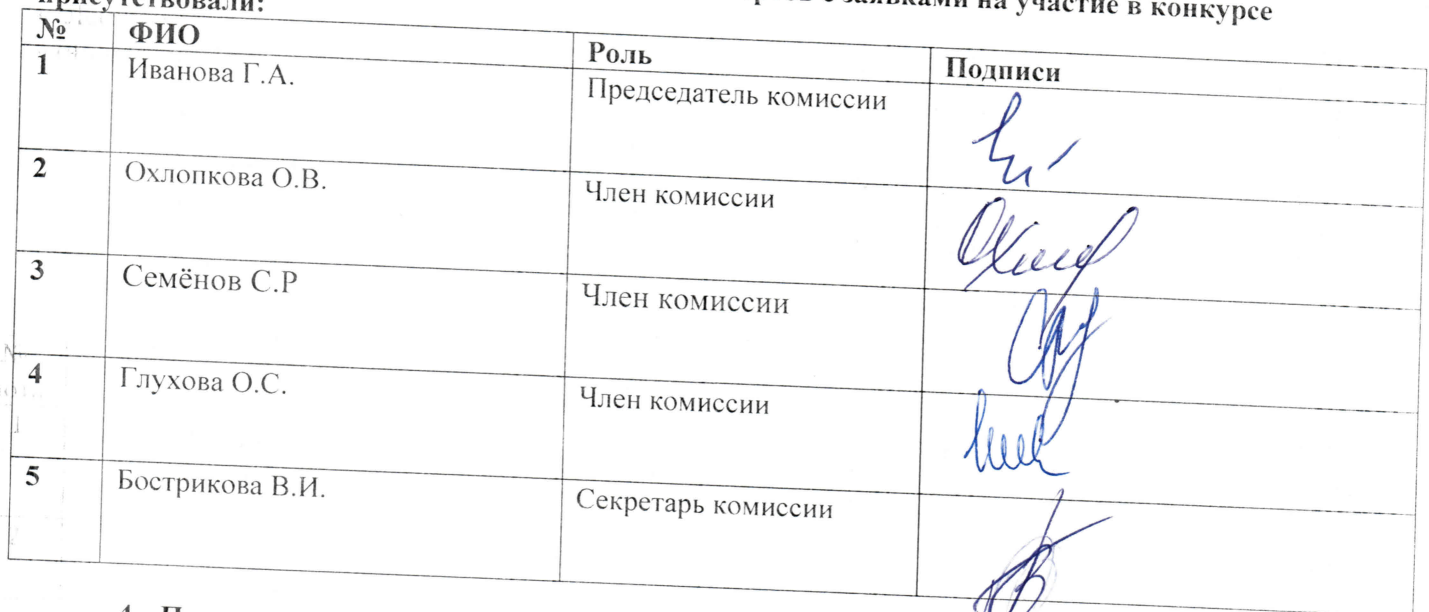 присутствовали: с заявками на участие в конкурсе
№ ФИО Роль Подписи
1 Иванова Г.А. Председатель комиссии
2 Охлопкова О.В. Член комиссии
3 Семёнов С.Р Член комиссии
4 Глухова О.С. Член комиссии
5 Бострикова В.И. Секретарь комиссии